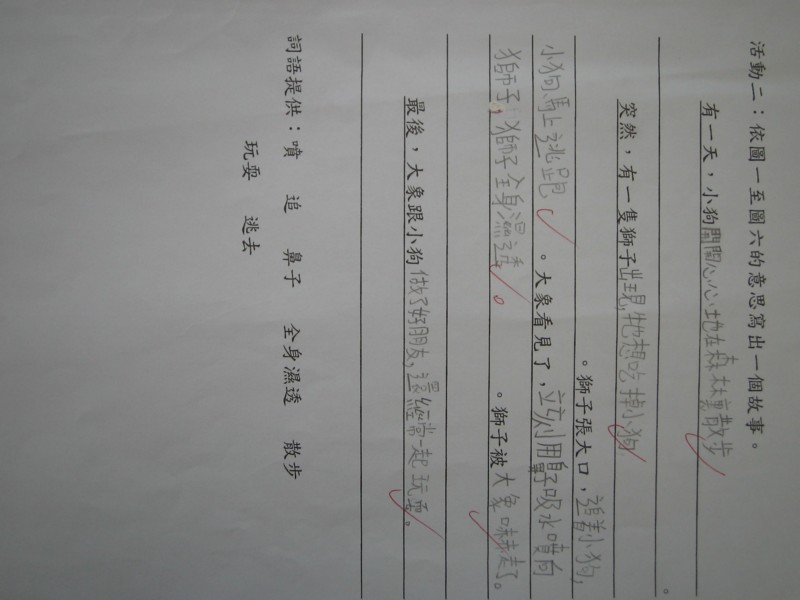 活動二：依圖一至圖六的意思寫出一個故事。
有一天，小狗開開心心地在森林裏散步
。
突然，有一隻獅子出現,牠想吃掉小狗
。獅子張大口，追着小狗,
小狗馬上逃跑。大象看見了，立刻用鼻吸水噴向
獅子，獅子全身濕透。。獅子被大象走了。
最後，大象跟小狗做了好朋友,還經常一起玩耍。
詞語提供：噴 追 鼻子 全身濕透 散步
玩耍 逃去